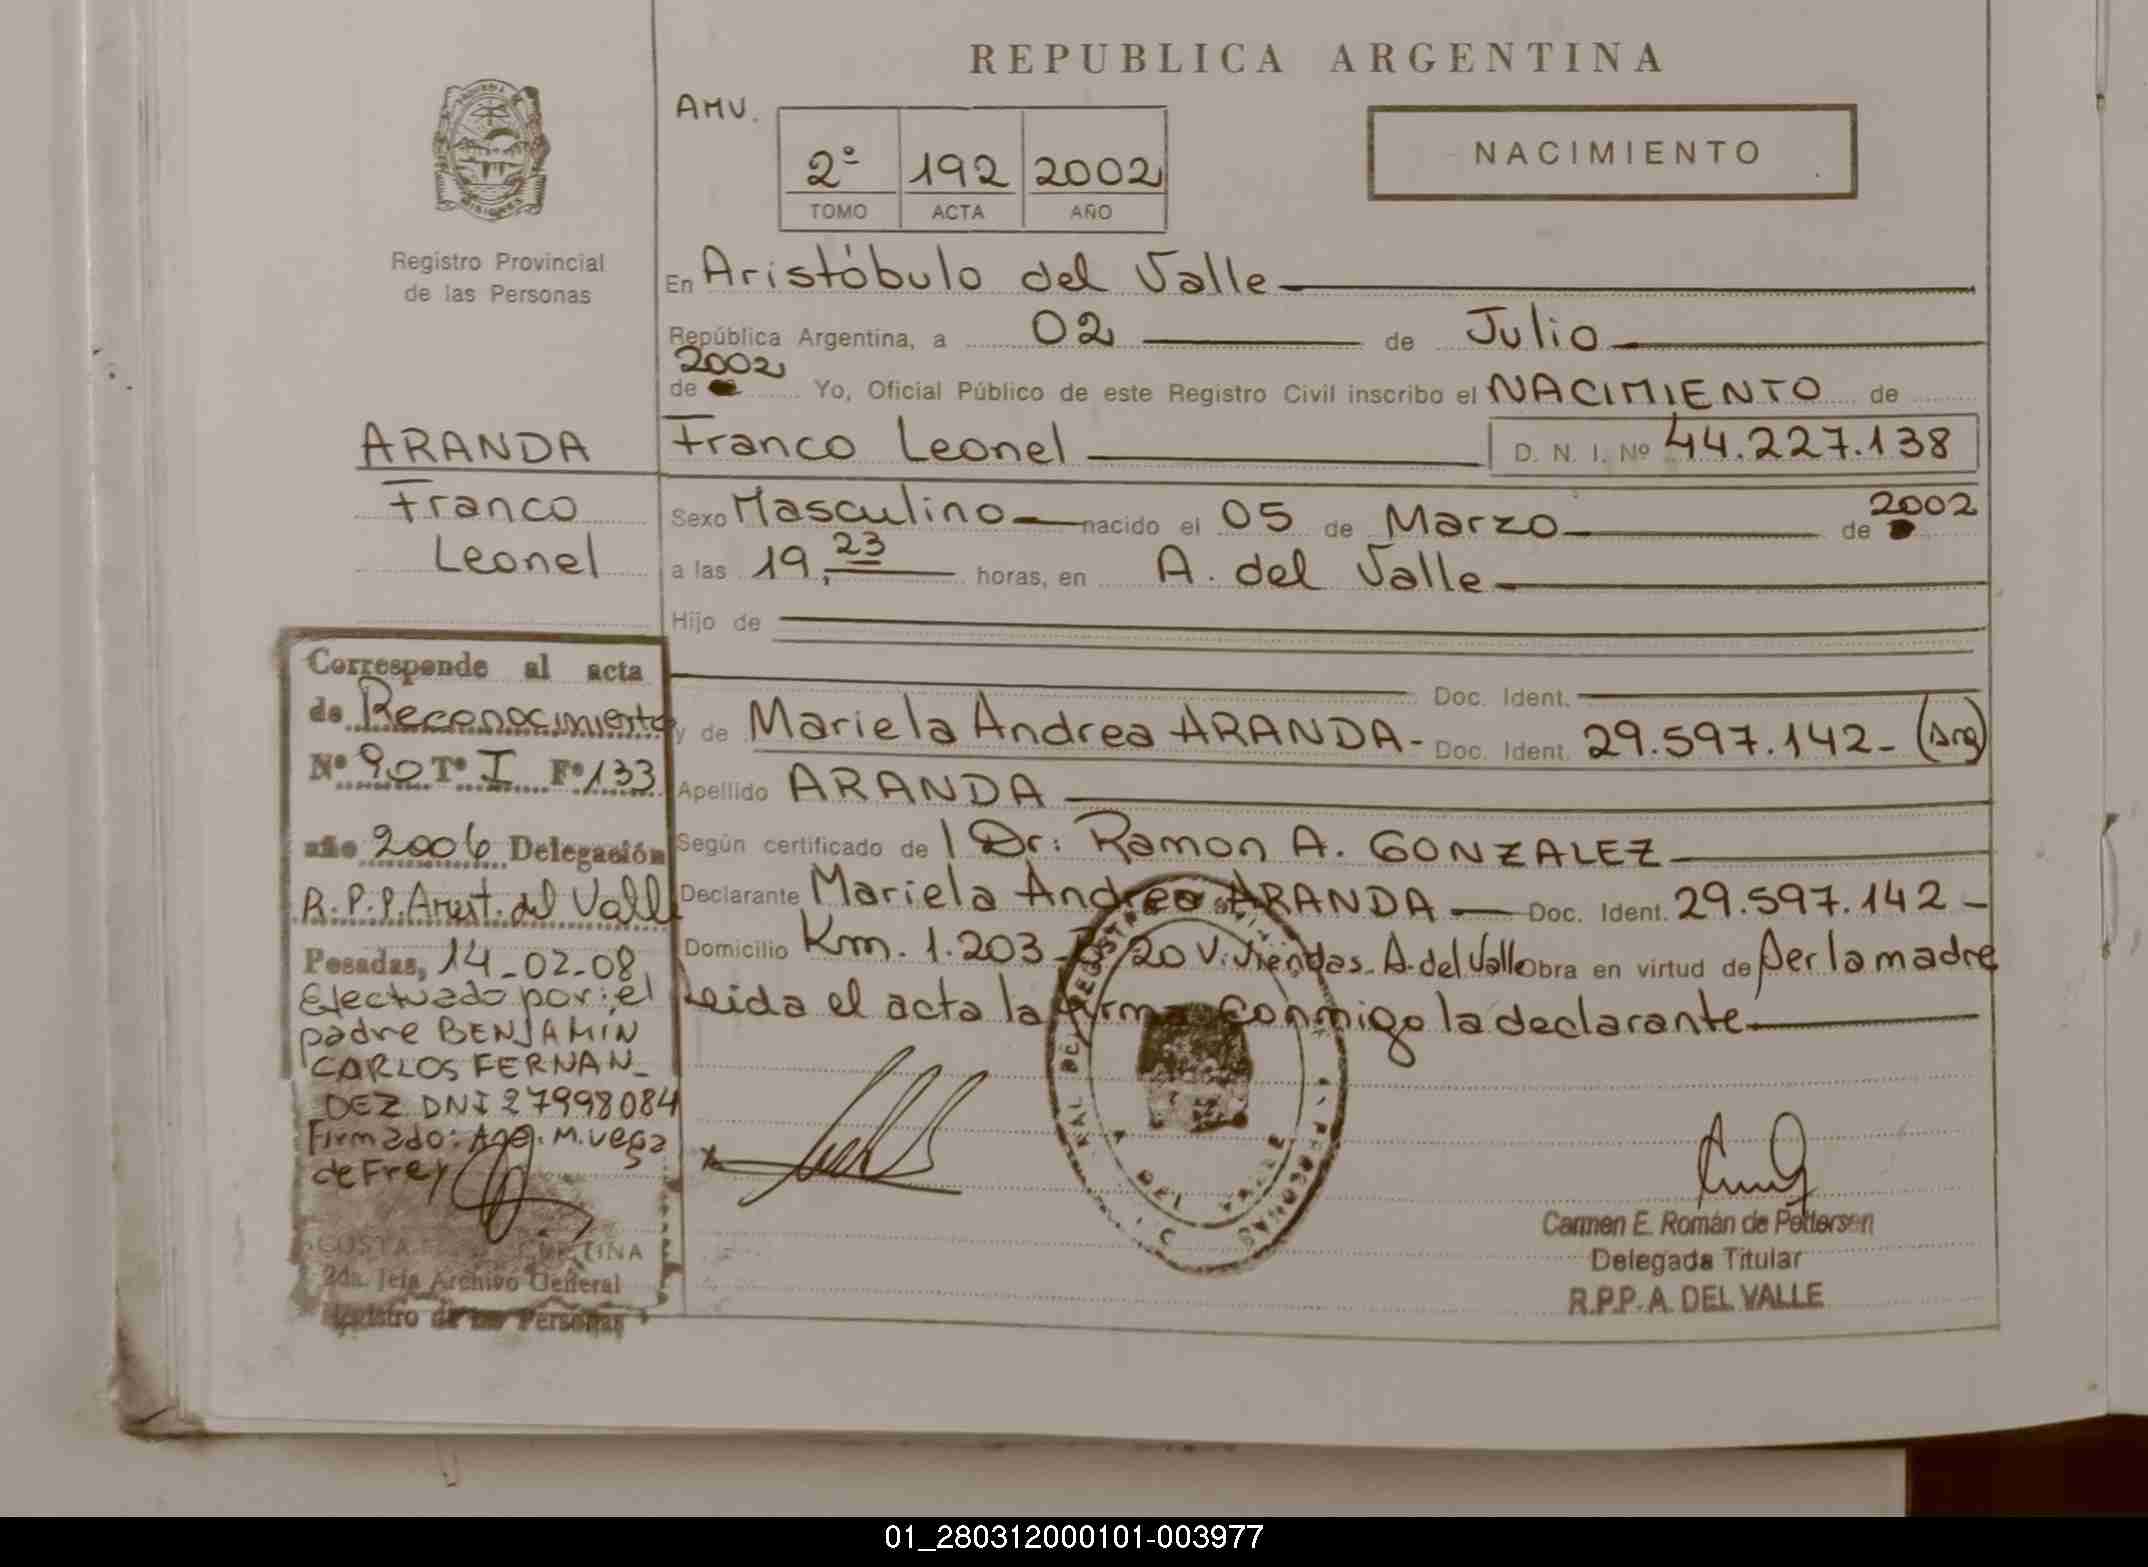 REPUBLICA ARGENTINA
AMV.
2º 192 2002
TOMO ACTA AÑO
NACIMIENTO
MISIONES
Registro Provincial
de las Personas
En Aristóbulo del Valle
República Argentina, a 02 de Julio
2002
de Yo, Oficial Público de este Registro Civil inscribo el NACIMIENTO de
Franco Leonel D. N. I. Nº 44.227.138
ARANDA
Franco
Leonel
Sexo Masculino nacido el 05 de Marzo de 2002
a las 19,23 horas, en A. del Valle
Hijo de
Doc. Ident.
y de Mariela Andrea ARANDA- Doc. Ident. 29.597.142- (Arg)
Apellido ARANDA
Según certificado de l Dr: Ramon A. GONZALEZ
Declarante Mariela Andrea ARANDA — Doc. Ident. 29.597.142-
Domicilio Km. 1.203 - B/ 20 Viviendas. A. del Valle Obra en virtud de Ser la madre
Leida el acta la firma conmigo la declarante
Corresponde al acta
de Reconocimiento
Nº 90 Tº I Fº 133
año 2006 Delegación
R.P.P. Arist. del Valle
Posadas, 14-02-08
Efectuado por: el
padre BENJAMIN
CARLOS FERNAN-
DEZ DNI 27998084
Firmado: Age. M. Vega
de Frey
2da. Jefa Archivo General
Registro de las Personas
A DEL VALLE
Carmen E. Román de Pettersen
Delegada Titular
R.P.P. A. DEL VALLE
01_280312000101-003977